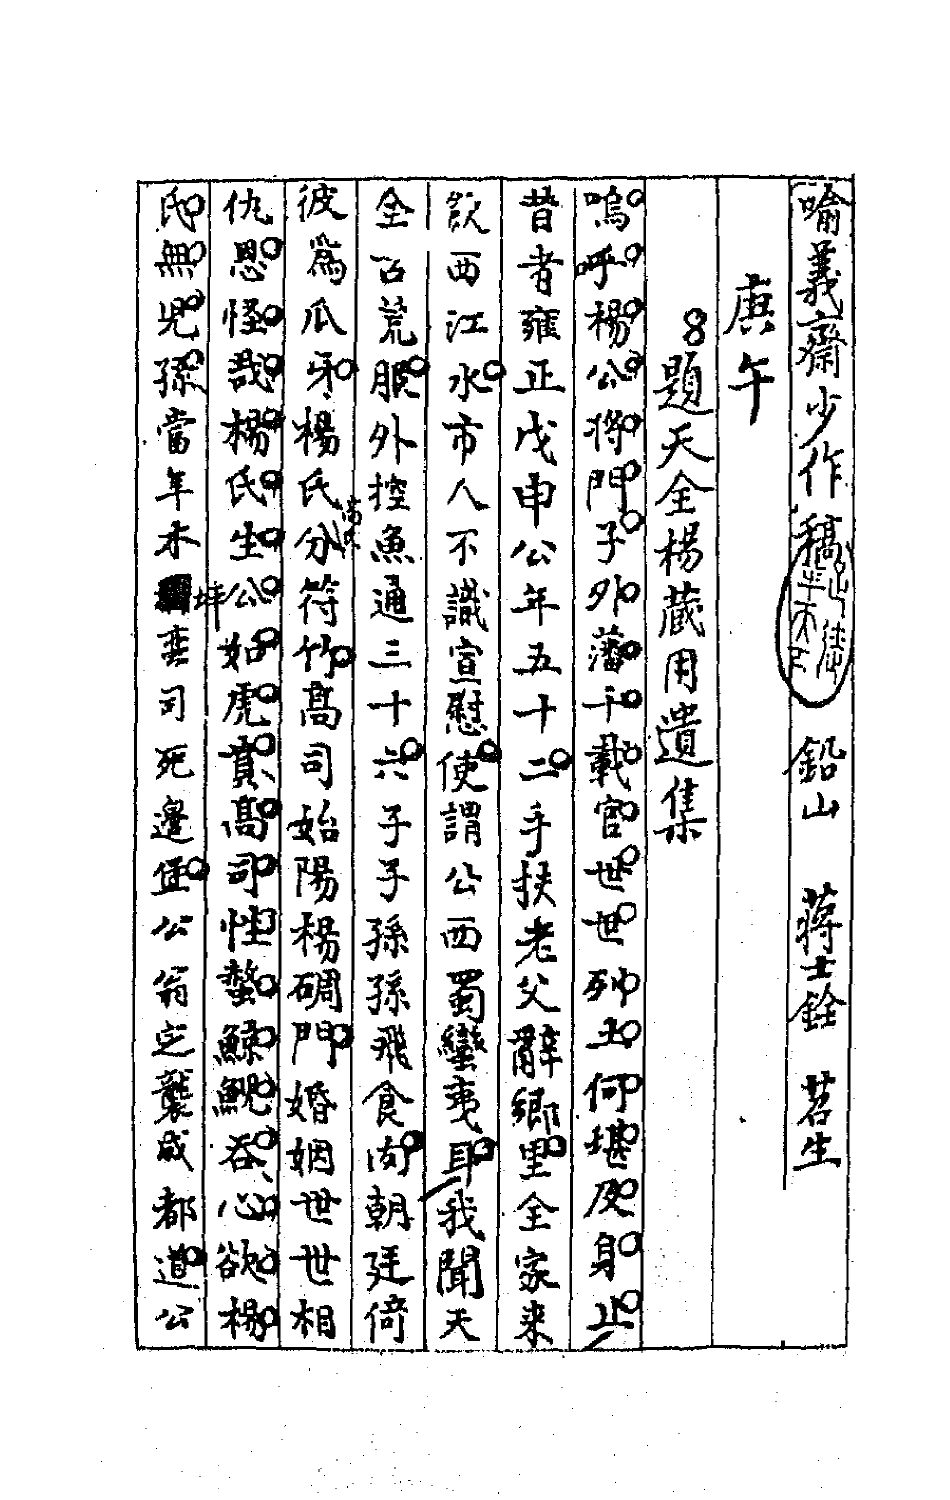 喻義齋少作稿 鉛山 蔣士銓 苕生
庚午
題天全楊蔵用遺集
嗚呼楊公將門子外藩千載官世世列土何堪及身止
昔者雍正戊申公年五十二手扶老父辭鄉里全家来
飲西江水市人不識宣慰使謂公西蜀蠻夷耳我聞天
全古荒服外控魚通三十六子子孫孫飛食肉朝廷倚
彼爲瓜牙楊氏分符竹高司始陽楊碉門婚姻世世相
仇恩怪哉楊氏生公如虎賁高司性螫鯨鯢吞心欲楊
氏無児孫當年木坪奕司死邊堡公翁定襲成都道公